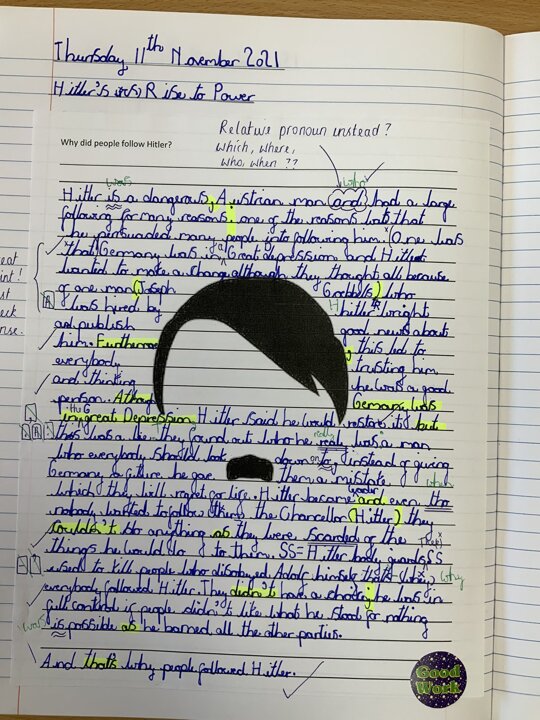 Thursday 11th November 2021
Hitler's Rise to Power
Relative pronoun instead?
which, where,
who, when ??
Why did people follow Hitler?
was
who
Hitler is a dangerous, Austrian man and had a large
following for many reasons, one of the reasons was that
he persuaded many people into following him. One was
that Germany was in Great depression and Hitler
wanted to make a change although they thought all because
of one man (Joseph Goebbels) who
was hired by Hitler wright
and publish good news about
him. Furthermore, this led to
everybody trusting him
and thinking he was a good
person. Germany was
in the great Depression Hitler said he would restore it, but
this was a lie. they found out who he really was a man
who everybody should look down on, instead of giving
Germany a future he gave them a mistake
which they will regret for life. Hitler became leader and even tho
nobody wanted to follow the Chancellor (Hitler) they
couldn't do anything as they were scared of the
things he would do to them. SS = Hitler body guards (SS
used to kill people who disobeyed Adolf himself
everybody followed Hitler. They didn't have a choice; he was in
full control if people didn't like what he stood for nothing
is possible as he banned all the other parties.
was
why
And that's why people followed Hitler.
Good
Work